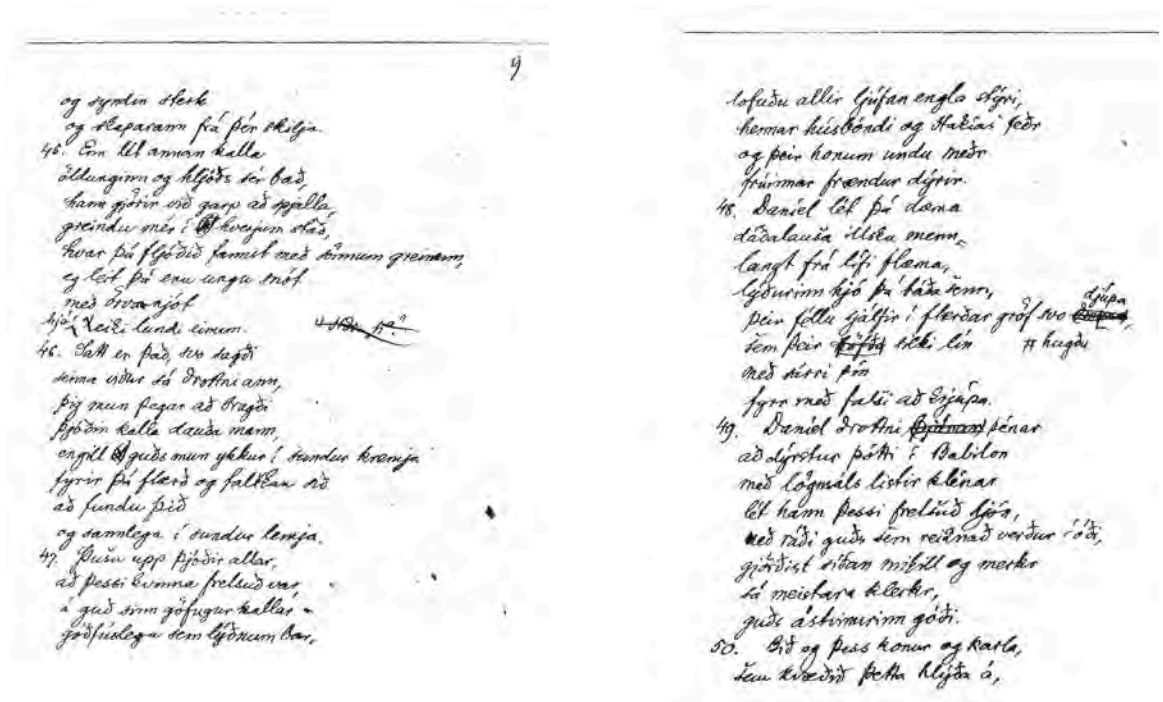 9
og syndin sterk
og skaparann frá þér skilja.
45. Enn lét annan kalla
öldunginn og hljóðs sér bað,
hann gjörir við garp að spjalla,
greindu mér í hverjum stað,
hvar þú fljóðið fannst með sönnum greinum,
eg leit þá enu ungu snót
með örva njót
hjá eiki lund einum.
46. Satt er það, svo sagði
seinna viður sá drottni ann,
þig mun þegar að bragði
þjóðin kalla dauða mann,
engill guðs mun ykkur í sundur kremja
fyrir þá flærð og falskan sið
að fundu þið
og sannlega í sundur lemja.
47. Þusu upp þjóðir allar,
að þessi kvinna frelsuð var,
á guð sinn göfugur kallar
góðfúslega sem lýðnum bar,
lofuðu allir ljúfan engla stýri,
hennar húsbóndi og Helkías feðr
og þeir honum undu meðr
frúinnar frændur dýrir.
48. Daníel lét þá dæma
dáðalausa illsku menn,
langt frá lífi flæma,
lýðurinn hjó þá báða senn,
djúpa
þeir féllu sjálfir í flærðar gröf svo
sem þeir silki lín hugðu
með sárri pín
fyrr með falsi að krjúpa.
49. Daníel drottni þénar
að dýrstur þótti í Babilon
með lögmáls listir klénar
lét hann þessi frelsuð hjón,
með ráði guðs sem reiknað verður í óði,
gjörðist síðan mikill og merkr
sá meistara klerkr,
guðs ástvinurinn góði.
50. Bið eg þess konur og karla,
sem kvæðið þetta hlýða á,